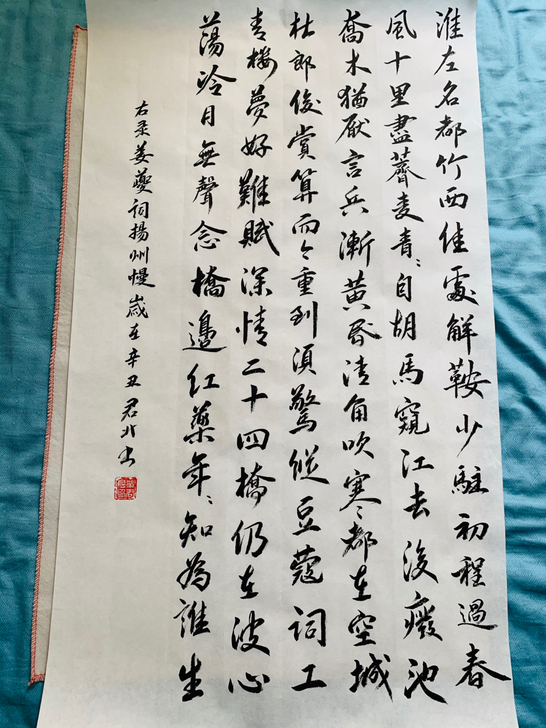 淮左名都竹西佳處解鞍少駐初程過春
風十里盡薺麥青〻自胡馬窺江去後廢池
喬木猶厭言兵漸黃昏清角吹寒都在空城
杜郎俊賞算而今重到須驚縱豆蔻詞工
青楼夢好難賦深情二十四橋仍在波心
蕩冷月無聲念橋邊紅藥年〻知為誰生
右录姜夔詞揚州慢 歲在辛丑 君北书